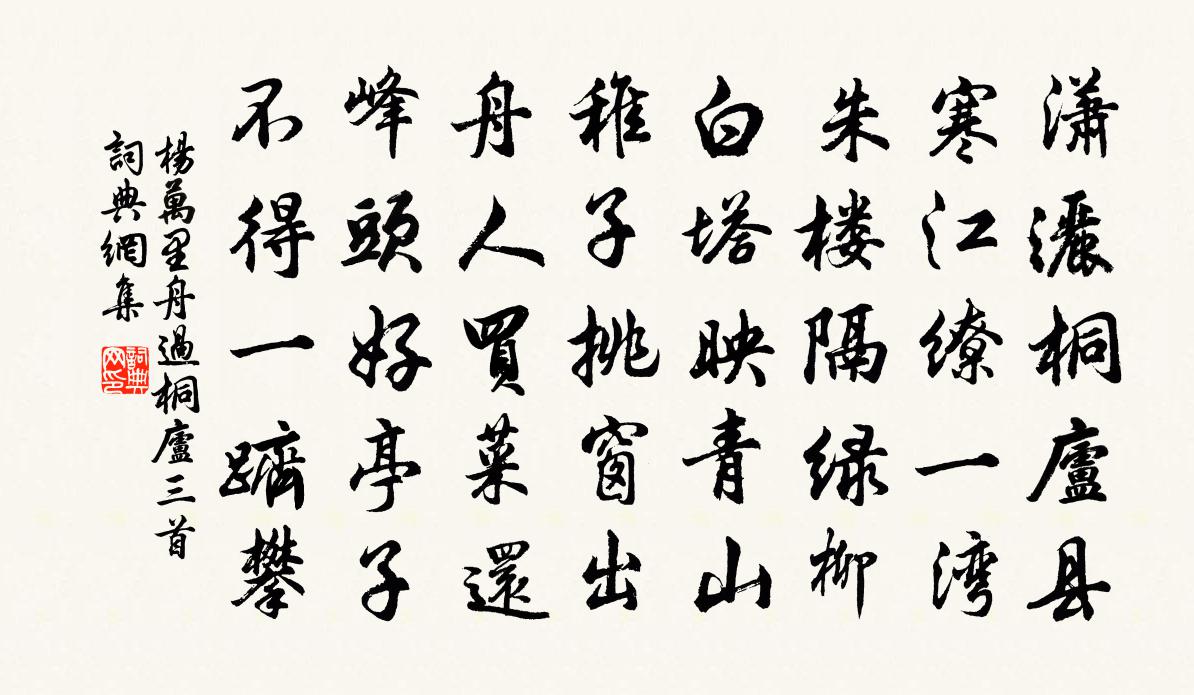 潇灑桐廬县
寒江缭一湾
朱楼隔绿柳
白塔映青山
稚子挑窗出
舟人買菜還
峰頭好亭子
不得一躋攀
楊萬里舟過桐廬三首
詞典網集
詞典网印